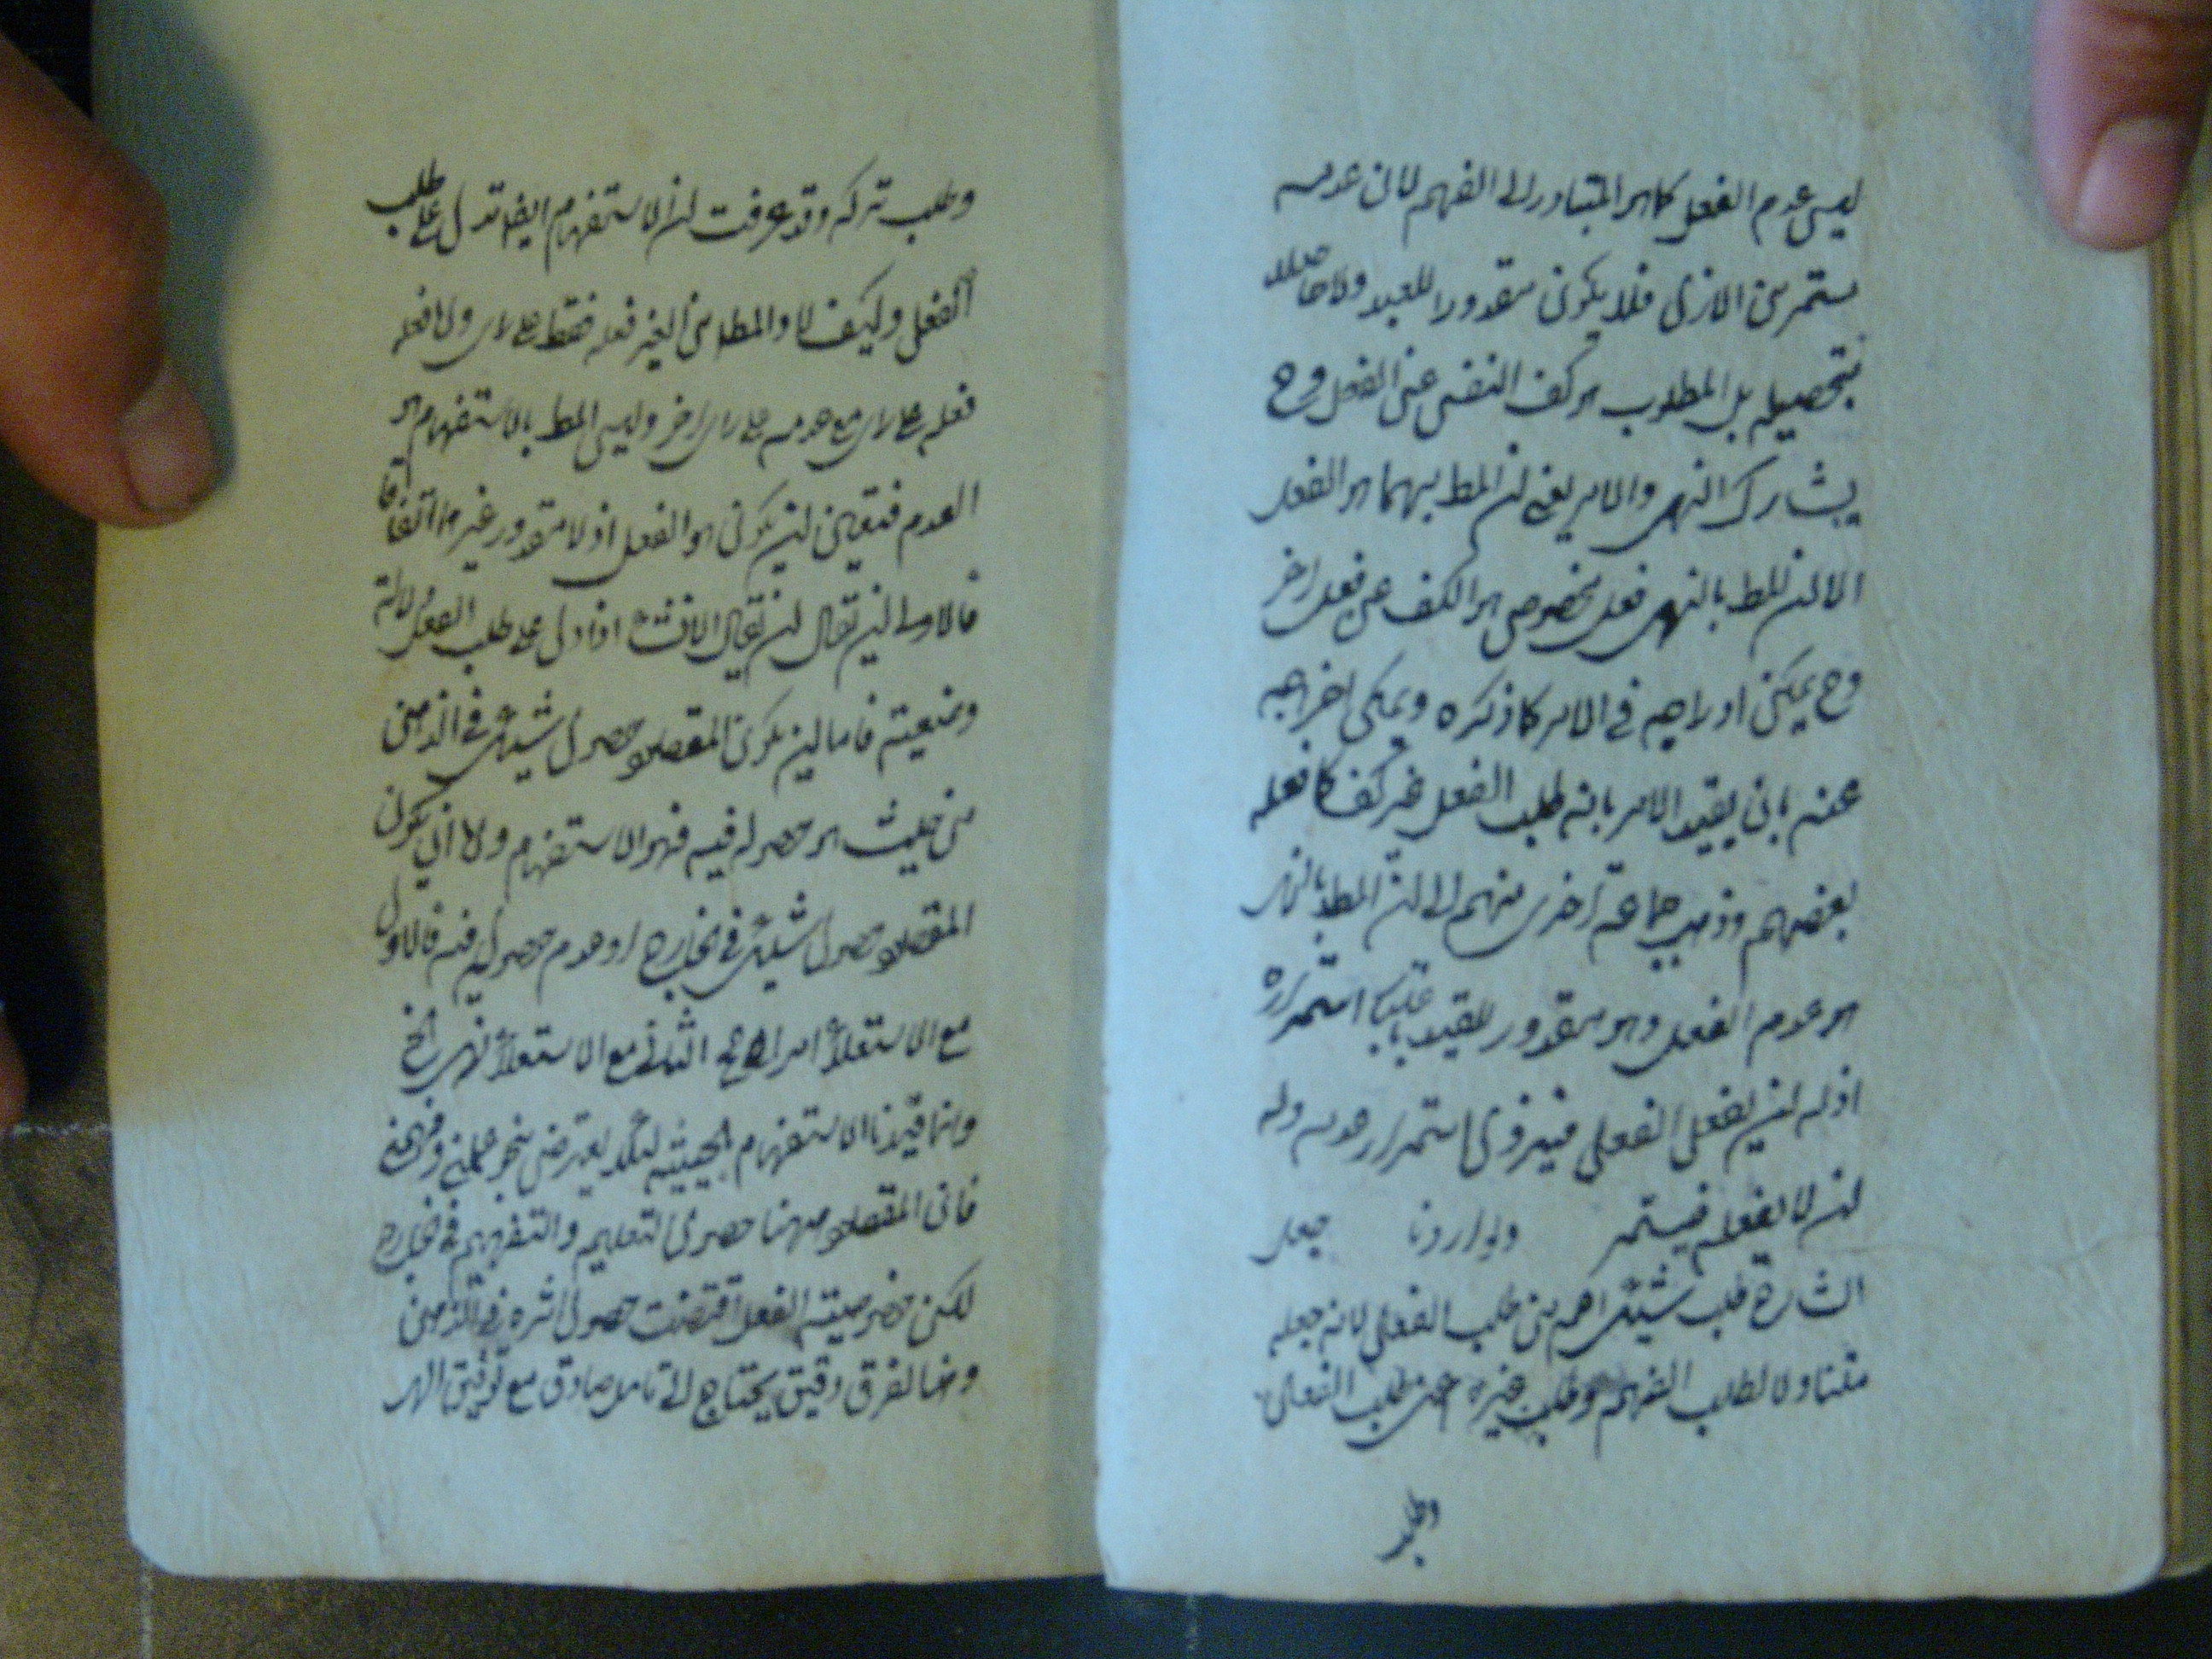 ليس عدم الفعل كما هو المتبادر الى الفهم لان عدمه
مستمر من الازل فلا يكون مقدورا للعبد ولا حاصلا
بتحصيله بل المطلوب هو كف النفس عن الفعل وح
يشارك النهي والامر يعني ان المط بهما هو الفعل
الا ان المط بالنهي فعل مخصوص هو الكف عن فعل اخر
وح يمكن ادراجه في الامر كما ذكره ويمكن اخراجه
عنه بان يقيد الامر بانه طلب الفعل غير كف كما فعله
بعضهم وذهب جماعة اخرى منهم الى ان المط بالنهي
هو عدم الفعل وهو مقدور للعبد باعتبار استمراره
اذ له ان يفعل الفعل فيزول استمرار عدمه وله
ان لا يفعله فيستمر ولو اردنا جعل
الشارح طلب شيئ اعم من طلب الفعل لانه جعله
متناولا لطلب الفهم وطلب غيره اعني طلب الفعل
وطلب
وطلب تركه وقد عرفت ان الاستفهام ايضا تدل على طلب
الفعل وكيف لا والمط من الغير فعله فقط على راى ولا فعله
فعله على راى مع عدمه على راى اخر وليس المط بالاستفهام هو
العدم فتعين ان يكون هو الفعل اذ لا مقدور غيرهما اتفاقا
فالاولى ان تقال ان يقال الانشاء اذا دل على طلب الفعل دلالة
وضعية فاما ان يكون المقصود حصول شيئ في الذهن
من حيث هو حصوله فيه فهو الاستفهام ولا ان يكون
المقصود حصول شيئ في الخارج او عدم حصوله فيه فالاول
مع الاستعلاء امر الخ والثاني مع الاستعلاء نهي الخ
وانما قيدنا الاستفهام بالحيثية لئلا يعترض بنحو علمني وفهمني
فان المقصود ههنا حصول التعليم والتفهيم في الخارج
لكن خصوصية الفعل اقتضت حصول اثره في الذهن
وهذا الفرق دقيق يحتاج الى تامل صادق مع توفيق الهي